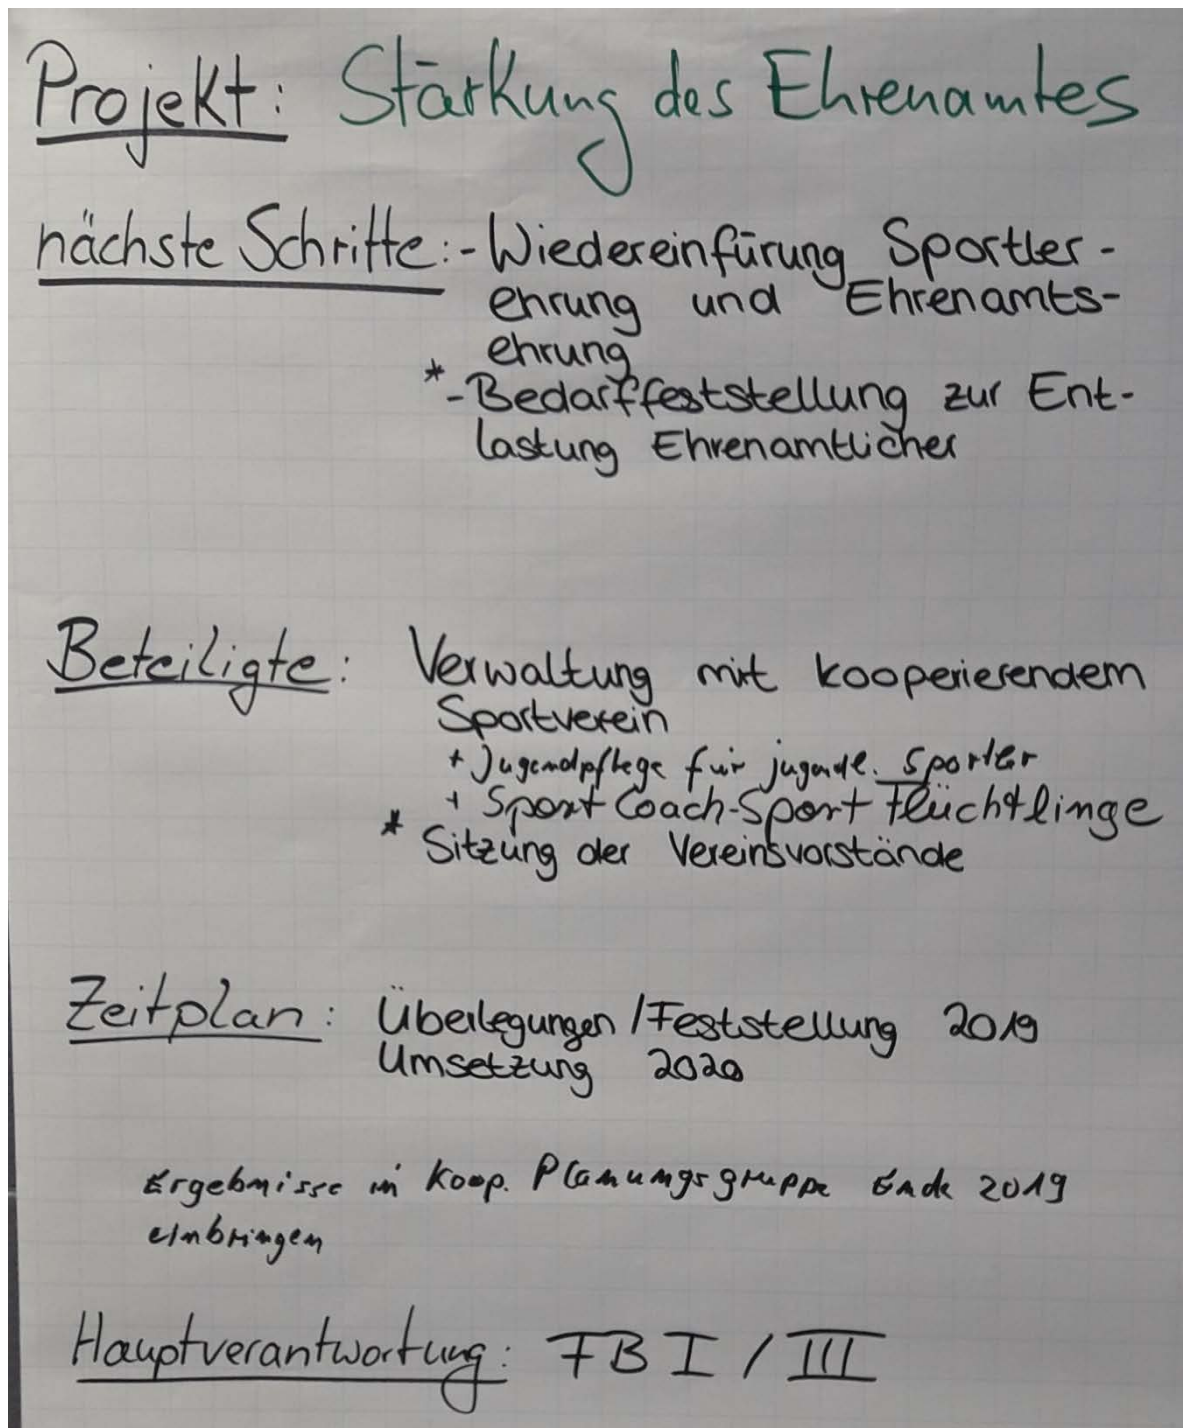 Projekt: Stärkung des Ehrenamtes
nächste Schritte: - Wiedereinfürung Sportler-
ehrung und Ehrenamts-
ehrung
* - Bedarffeststellung zur Ent-
lastung Ehrenamtlicher
Beteiligte: Verwaltung mit kooperierendem
Sportverein
+ Jugendpflege für jugendl. Sportler
+ Sport Coach-Sport Flüchtlinge
* Sitzung der Vereinsvorstände
Zeitplan: Überlegungen / Feststellung 2019
Umsetzung 2020
Ergebnisse in Koop. Planungsgruppe Ende 2019
einbringen
Hauptverantwortung: FB I / III